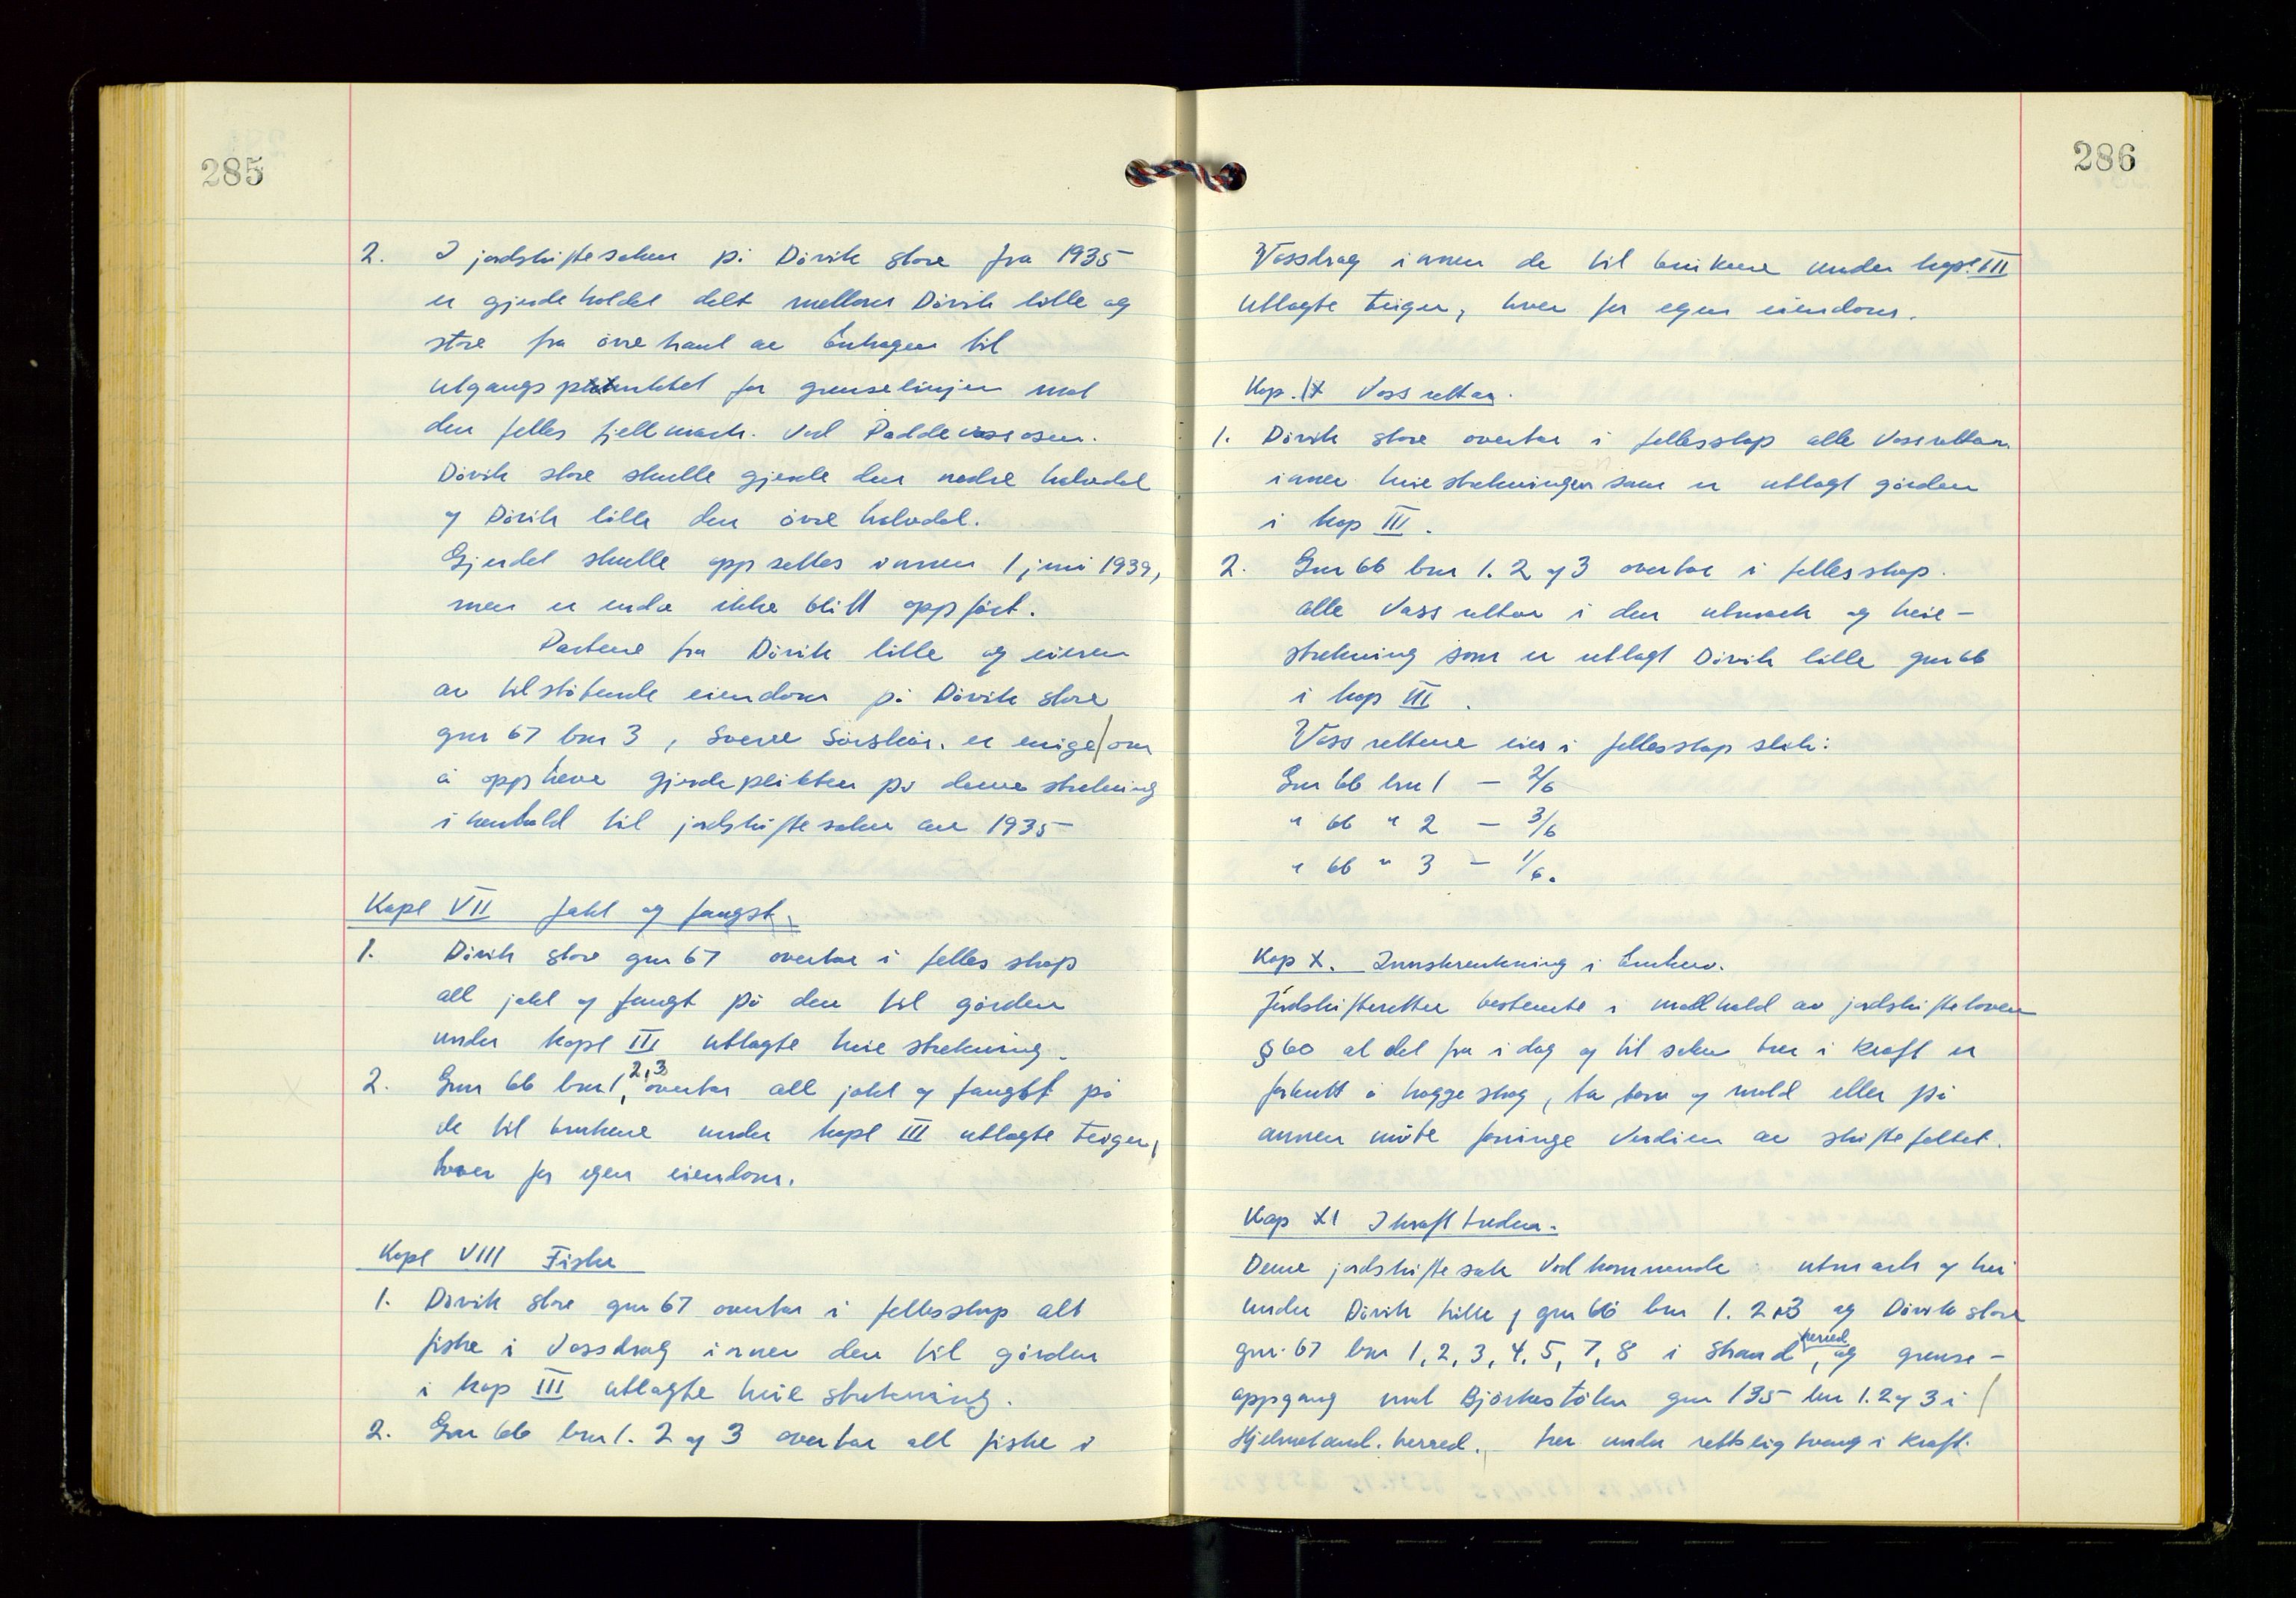 285
2. I jordskiftesaken på Dövik store fra 1935
er gjerdeholdet delt mellom Dövik lille og
store fra övre kant av Enhagen til
utgangspunktet for grenselinjen mot
den felles fjellmark. ved Paddevassosen.
Dövik store skulle gjerde den nedre halvdel
og Dövik lille den övre halvdel.
Gjerdet skulle oppsettes innen 1 juni 1939,
men er enda ikke blitt oppfört.
Partene fra Dövik lille og eieren
av tilstötende eiendom på Dövik store
gnr 67 bnr 3, Sverre Sörskår. er enige om
å oppheve gjerdeplikten på denne strekning
i henhold til jordskiftesaken av 1935
Kapl VII Jakt og fangst.
1. Dövik store gnr 67 overtar i fellesskap
all jakt og fangt på den til gården
under kapl III utlagte heiestrekning.
2. Gnr 66 bnr 1, 2,3 overtar all jakt og fangst på
de til brukene under kapl III utlagte teiger,
hver for egen eiendom.
Kapl VIII Fiske
1. Dövik store gnr 67 overtar i fellesskap alt
fiske i Vassdrag innen den til gården
i kap III utlagte heiestrekning.
2. Gnr 66 bnr 1. 2 og 3 overtar alt fiske i
286
Vassdrag innen de til brukene under kapl. III
utlagte teiger, hver for egen eiendom.
Kap. IX Vassrettar.
1. Dövik store overtar i fellesskap alle Vassrettar
innen heiestrekningen som er utlagt gården
i kap III.
2. Gnr 66 bnr 1. 2 og 3 overtar i fellesskap.
alle Vassrettar i den utmark og heie-
strekning som er utlagt Dövik lille gnr 66
i kap III.
Vassrettene eies i fellesskap slik:
Gnr 66 bnr 1 – 2/6
" 66 " 2 – 3/6
" 66 " 3 – 1/6.
Kap X. Innskrenkning i bruken.
Jordskifteretten bestemte i medhold av jordskifteloven
§ 60 at det fra i dag og til saken trer i kraft er
forbutt å hogge skog, ta torv og mold eller på
annen måte forringe Verdien av skiftefeltet.
Kap XI Ikrafttreden.
Denne jordskiftesak Vedkommende utmark og hei
under Dövik lille, gnr 66 bnr 1. 2 og 3 og Dövik store
gnr. 67 bnr 1, 2, 3, 4, 5, 7, 8 i Strand herred, og grense-
oppgang mot Björkestölen gnr 135 bnr 1. 2 og 3 i
Hjelmeland. herred. trer under rettslig tvang i kraft.